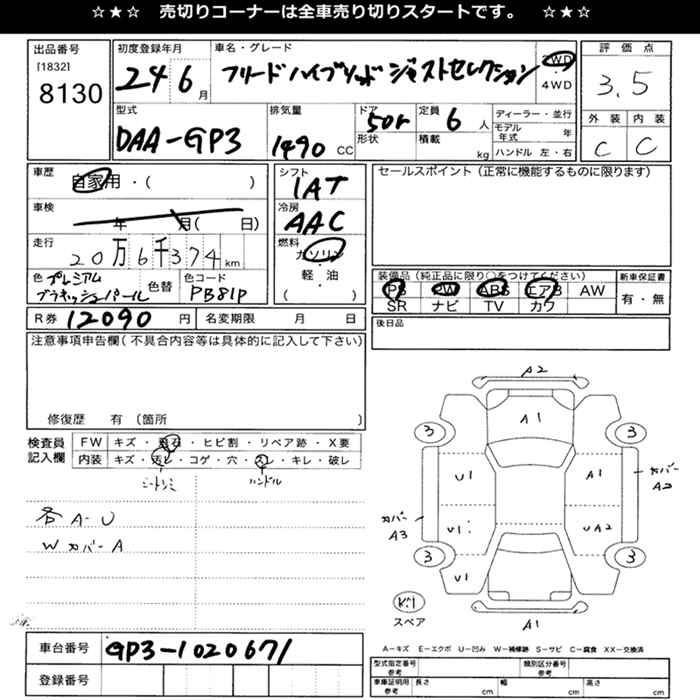 ☆★☆ 売切りコーナーは全車売り切りスタートです。 ☆★☆
出品番号
[1832]
8130
初度登録年月
24 6 月
車名・グレード
フリードハイブリッド ジャストセレクション
2WD
・
4WD
評価点
3.5
外装 内装
C C
型式
DAA-GP3
排気量
1490 CC
ドア
形状
50r
定員
6 人
積載
kg
ディーラー・並行
モデル
年式
年
ハンドル 左・右
車歴
自家用・( )
車検
年 月( 日)
走行
20万6千374km
色 プレミアム
ブラキッシュパール
色替
色コード
PB81P
シフト
1AT
冷房
AAC
燃料
ガソリン
・
軽・油
( )
セールスポイント(正常に機能するものに限ります)
装備品(純正品に限り○をつけてください)
PS PW ABS エアB AW
SR ナビ TV カワ
新車保証書
有・無
R券 12090 円
名変期限 月 日
後日品
注意事項申告欄(不具合内容等は具体的に記入して下さい)
修復歴 有 (箇所 )
検査員
記入欄
FW キズ・飛石・ヒビ割・リペア跡・X要
内装 キズ・汚レ・コゲ・穴・スレ・キレ・破レ
シートシミ ハンドル
各 A-U
W カバーA
A2
A1
3 3
U1 A1
カバー
A2
カバー
A3
U1 UA2
3 3
U1
スペア
A1
車台番号 GP3-1020671
登録番号
A-キズ E-エクボ U-凹み W-補修跡 S-サビ C-腐食 XX-交換済
型式指定番号
参考
類別区分番号
参考
車庫証明用
参考
長さ cm 幅 cm 高さ cm